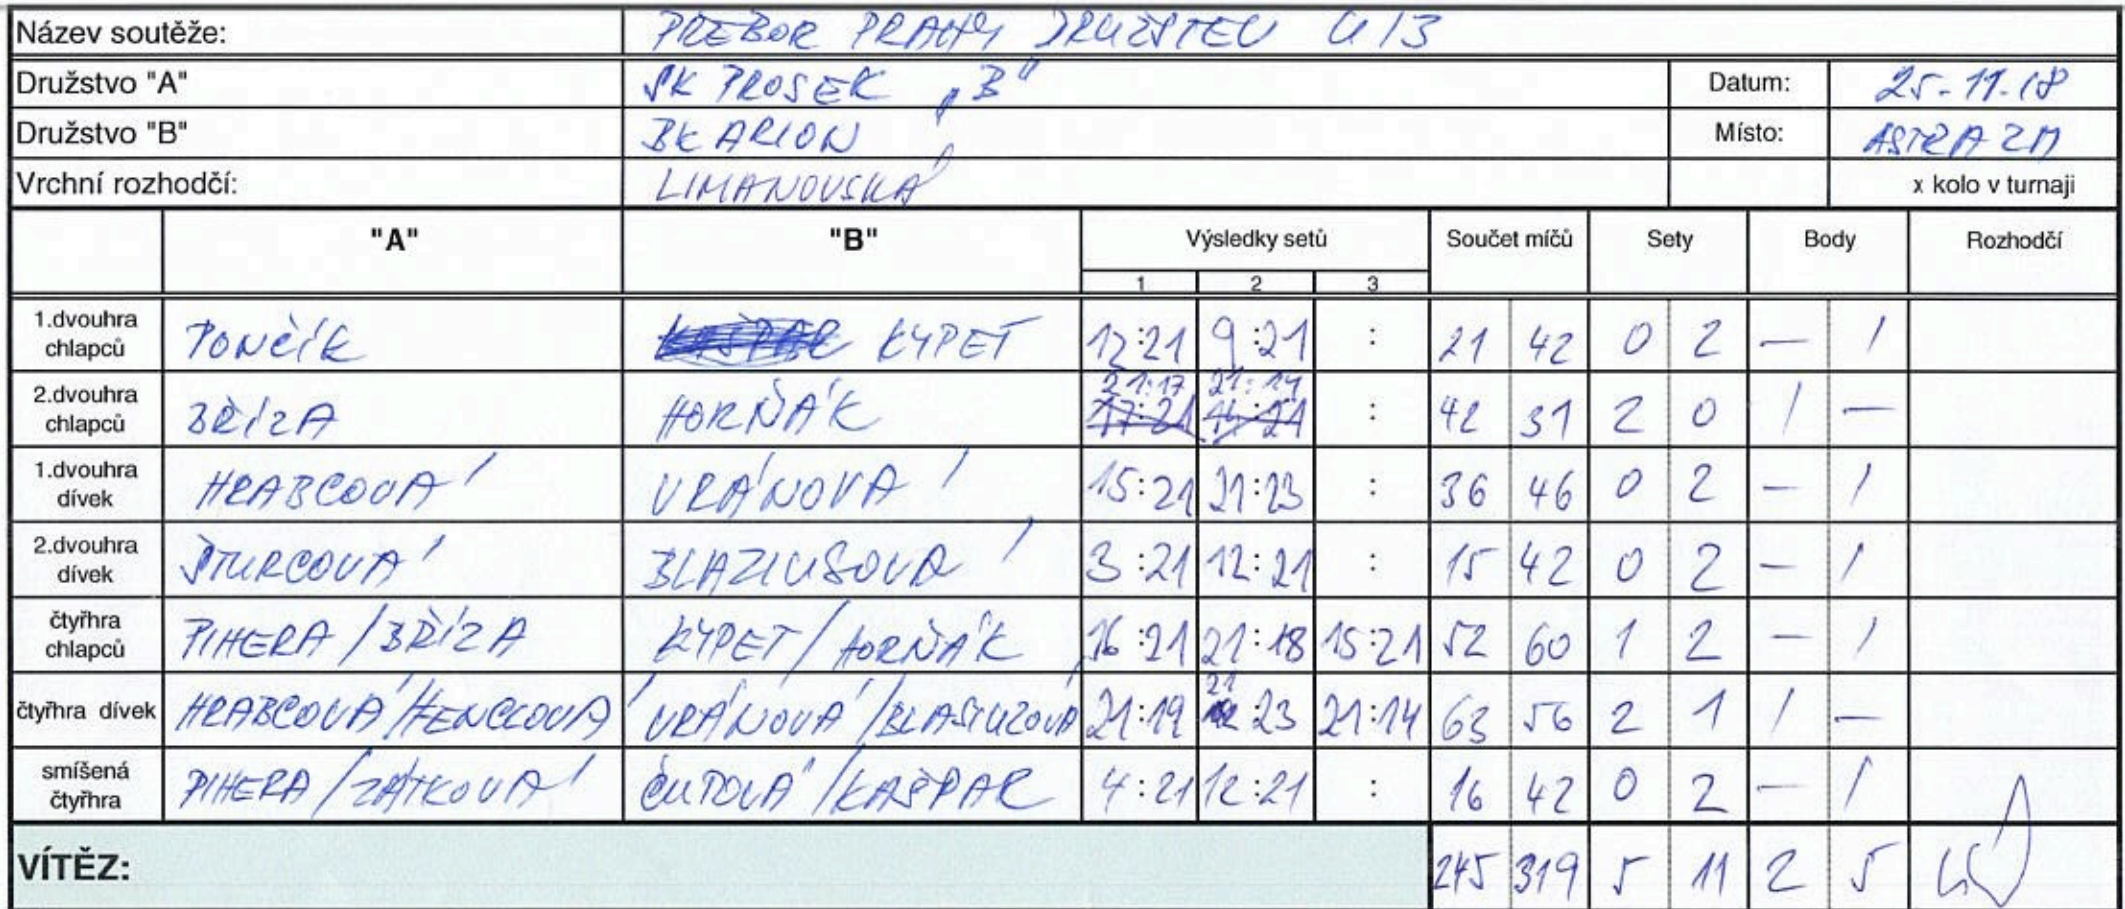 Název soutěže: PŘEBOR PRAHY DRUŽSTEV U13
Družstvo "A" SK PROSEK „B"
Datum: 25.11.18
Družstvo "B" BK ARION
Místo: ASTRA ZM
Vrchní rozhodčí: LIMANOVSKÁ
x kolo v turnaji
"A" "B" Výsledky setů Součet míčů Sety Body Rozhodčí
1 2 3
1.dvouhra chlapců PONČÍK KYPET 12:21 9:21 : 21 42 0 2 — 1
2.dvouhra chlapců BŘÍZA HORŇÁK 21:17 21:14 : 42 31 2 0 1 —
1.dvouhra dívek HRABCOVÁ VRÁNOVÁ 15:21 21:23 : 36 46 0 2 — 1
2.dvouhra dívek ŠTURCOVÁ BLAZIUSOVÁ 3:21 12:21 : 15 42 0 2 — 1
čtyřhra chlapců PIHERA/BŘÍZA KYPET/HORŇÁK 16:21 21:18 15:21 52 60 1 2 — 1
čtyřhra dívek HRABCOVÁ/HENCLOVÁ VRÁNOVÁ/BLASIUZOVÁ 21:19 21 23 21:14 63 56 2 1 1 —
smíšená čtyřhra PIHERA/ZÁTKOVÁ /KAŠPAR 4:21 12:21 : 16 42 0 2 — 1
VÍTĚZ: 245 319 5 11 2 5